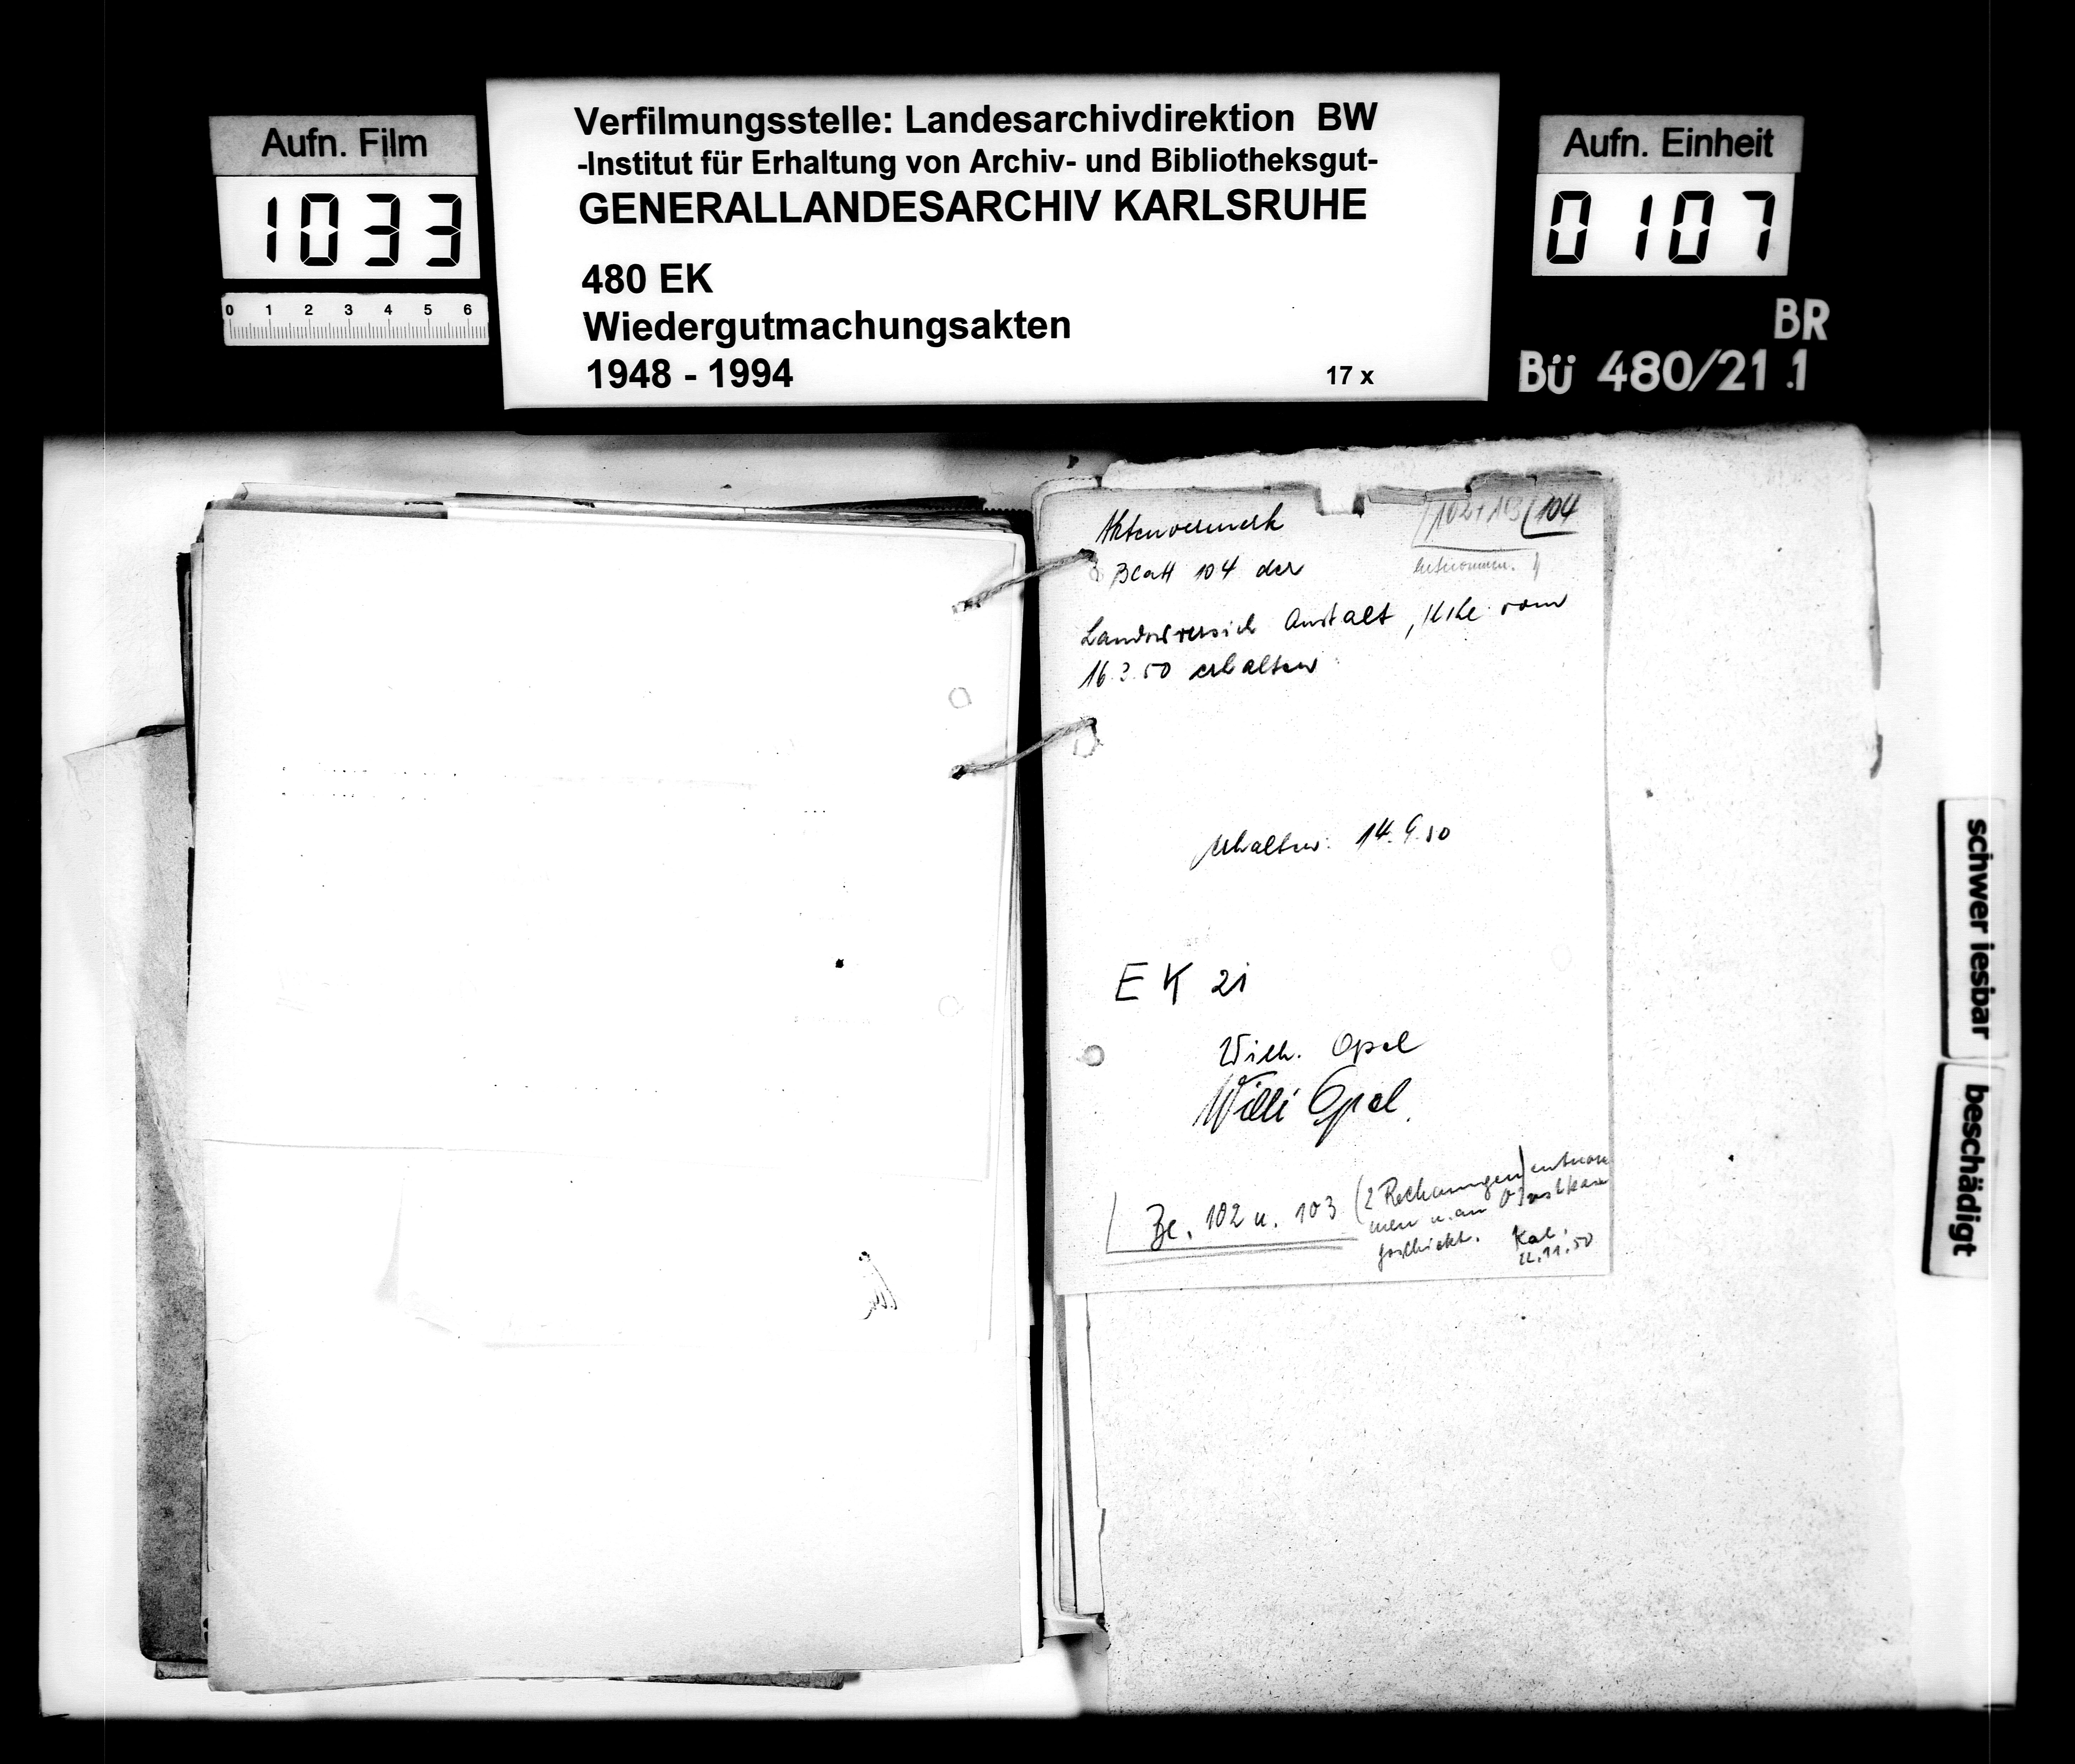 Aufn. Film
1033
0 1 2 3 4 5 6
Verfilmungsstelle: Landesarchivdirektion BW
-Institut für Erhaltung von Archiv- und Bibliotheksgut-
GENERALLANDESARCHIV KARLSRUHE
480 EK
Wiedergutmachungsakten
1948 - 1994
17 x
Aufn. Einheit
0107
BR
Bü 480/21.1
102+103/104
entnommen.
Aktenvermerk
Blatt 104 der
Landesversich Anstalt, Khe vom
16.3.50 erhalten
erhalten: 14.9.50
EK 21
Wilh. Opel
Willi Opel.
Bl. 102 u. 103 (2 Rechnungen) entnom
men u. an
geschickt.
22.11.50
schwer lesbar
beschädigt